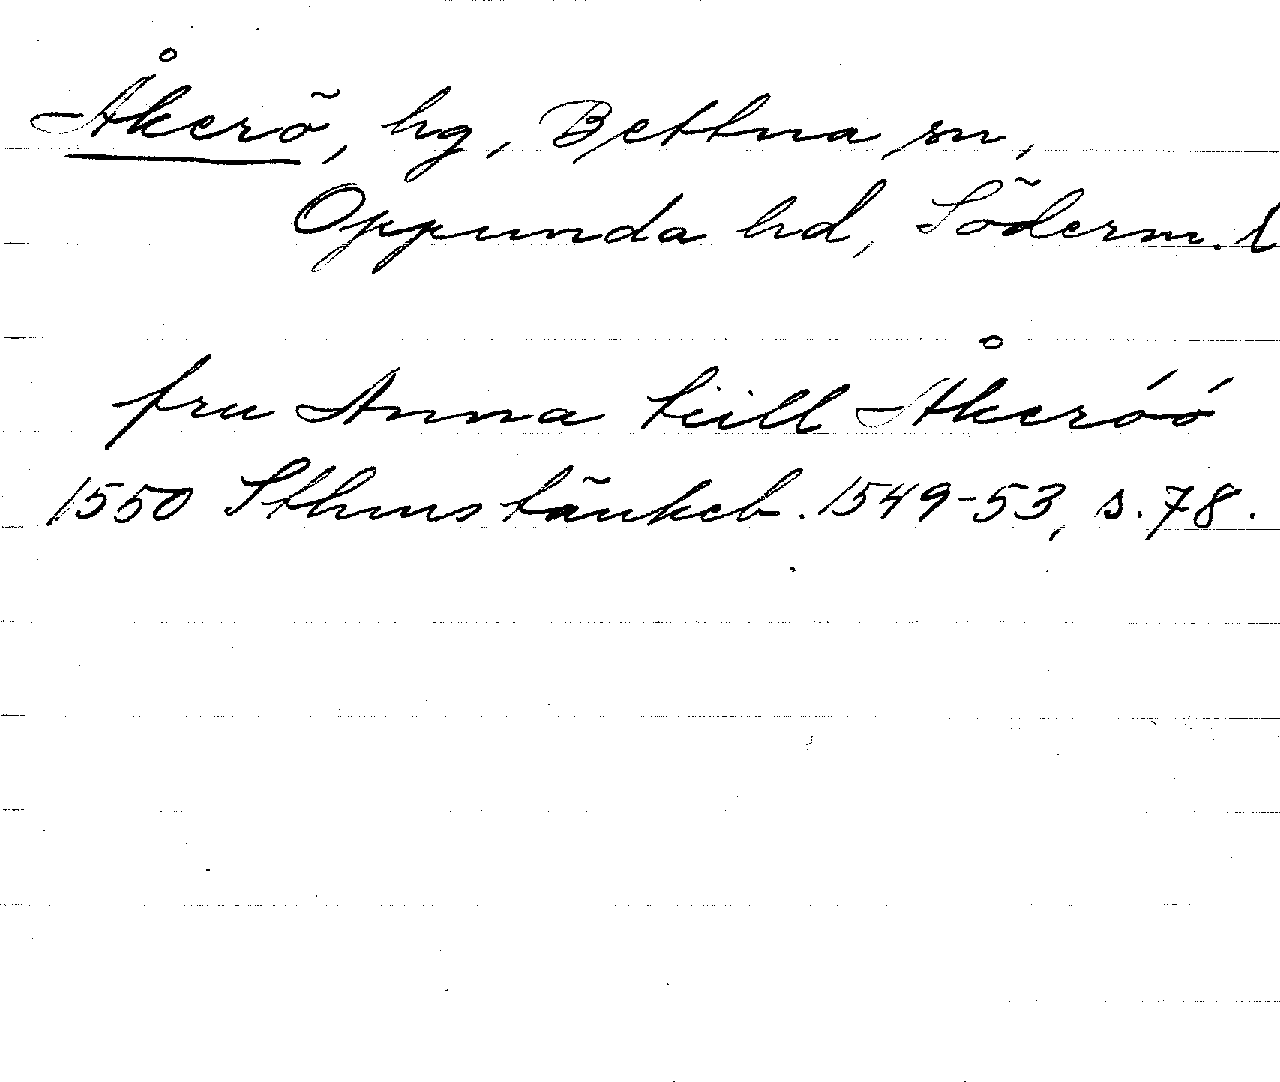 Åkerö, hg, Bettna sn,
Oppunda hd, Söderm. l
fru Anna tiill Åkeróó
1550 Sthms tänkeb. 1549-53, s. 78.